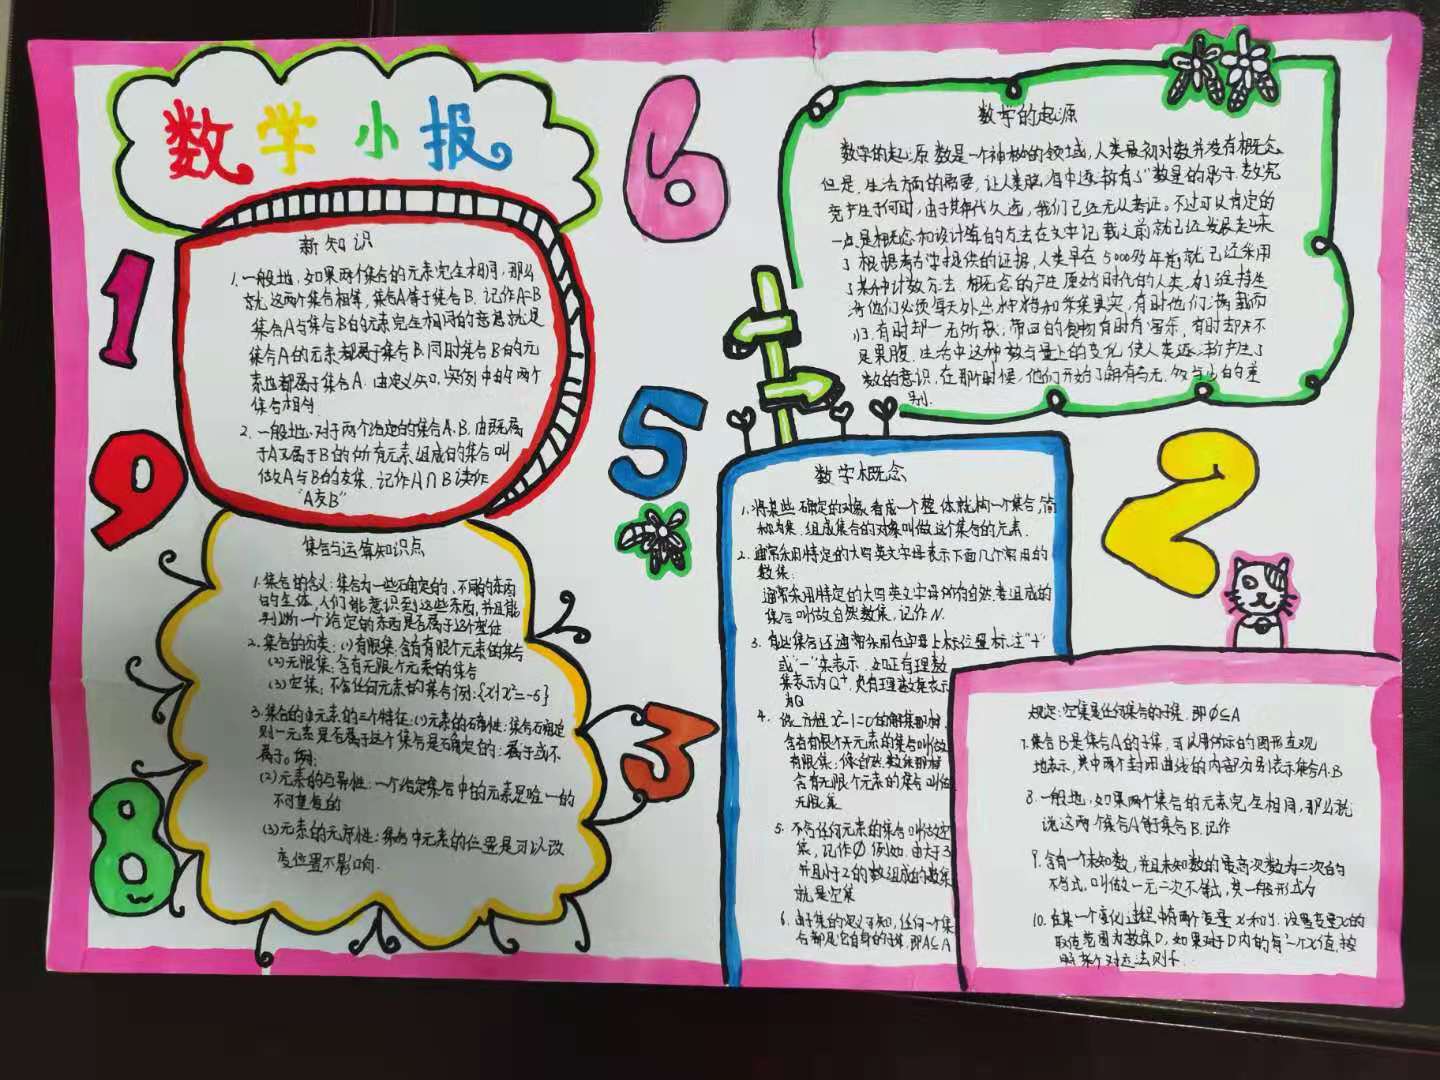 数学小报
新知识
1.一般地,如果两个集合的元素完全相同,那么
就这两个集合相等,集合A等于集合B.记作A=B
集合A与集合B的元素完全相同的意思就是
集合A的元素都属于集合B.同时集合B的元
素也都属于集合A.由定义知,实例中的两个
集合相
2.一般地.对于两个给定的集合A.B.由既属
于A又属于B的所有元素组成的集合叫
做A与B的交集.记作A∩B读作
"A交B"
集合与运算知识点
1.集合的含义:集合为一些确定的,不同的东西
的全体,人们能意识到这些东西,并且能
判断一个给定的东西是否属于这个整体
2.集合的分类:(1)有限集:含有有限个元素的集合
(2)无限集:含有无限个元素的集合
(3)空集:不含任何元素的集合例:{x|x²=-5}
3.集合的中元素的三个特征:(1)元素的确定性:集合确定
则一元素是否属于这个集合是确定的:属于或不
属于。例:
(2)元素的互异性:一个给定集合中的元素是唯一的
不可重复的
(3)元素的无序性:集合中元素的位置是可以改
变位置不影响.
1
9
8
6
5
3
2
数学的起源
数学的起源 数是一个神秘的领域,人类最初对数并没有概念.
但是.生活方面的需要,让人类脑海中逐渐有了"数量"的影子.数究
竟产生于何时,由于其年代久远,我们已经无从考证。不过可以肯定的
一点是概念和设计算的方法在文字记载之前就已经发展起来
了.根据考古学提供的证据,人类早在5000多年前就已经采用
了某种计数方法.
着他们必须每天外出狩猎和采集果实,有时他们满载而
归.有时却一无所获,带回的食物有时有富余,有时却
是果腹.生活中这种数与量上的变化,使人类逐渐产生了
数的意识.在那个时候,他们开始了解有与无,多与少的差
别.
数学概念
1.将某些确定的对象看成一个整体就构一个集合,简
称为集.组成集合的对象叫做这个集合的元素.
2.通常采用特定的大写英文字母表示下面几个常用的
数集:
通常采用特定的大写英文字母所有自然数组成的
集合叫做自然数集,记作N.
3.有些集合还通常采用在字母上标位置标注"+"
或"-"来表示.如正有理数
集表示为Q⁺,负有理数集表示
为Q
4.
含有有限个元素的集合叫做
有限集;
含有无限个元素的集合叫做
无限集
5.不含任何元素的集合叫做空
集,记作∅ 例如.由大于3
并且小于2的数组成的数集
就是空集
6.由子集的定义可知,任何一个集
合都是它自身的子集.即A⊆A
规定:空集是任何集合的子集.即∅⊆A
7.集合B是集合A的子集.可以用所示的图形直观
地表示,其中两个封闭曲线的内部分别表示集合A.B
8.一般地,如果两个集合的元素完全相同,那么就
说这两个集合A等于集合B.记作
9.含有一个未知数,并且未知数的最高次数为二次的
不等式.叫做一元二次不等式,其一般形式为
10.在某一个变化过程中有两个变量x和y.设置变量x的
取值范围为数集D,如果对于D内的每一个x值,按
照某个对应法则f.